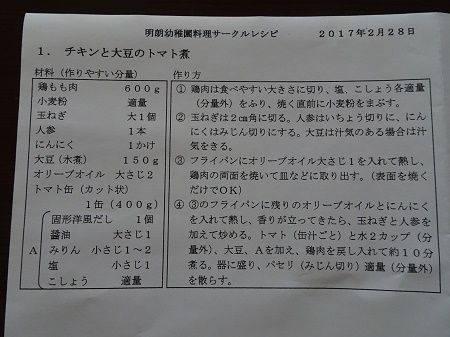 明朗幼稚園料理サークルレシピ　２０１７年２月２８日
１．　チキンと大豆のトマト煮
材料（作りやすい分量）
鶏もも肉　６００ｇ
小麦粉　適量
玉ねぎ　大１個
人参　１本
にんにく　１かけ
大豆（水煮）　１５０ｇ
オリーブオイル　大さじ２
トマト缶（カット状）
１缶（４００ｇ）
固形洋風だし　１個
醤油　大さじ１
A　みりん　小さじ１～２
塩　小さじ１
こしょう　適量
作り方
① 鶏肉は食べやすい大きさに切り、塩、こしょう各適量
（分量外）をふり、焼く直前に小麦粉をまぶす。
② 玉ねぎは２㎝角に切る。人参はいちょう切りに、にん
にくはみじん切りにする。大豆は汁気のある場合は汁
気をきる。
③ フライパンにオリーブオイル大さじ１を入れて熱し、
鶏肉の両面を焼いて皿などに取り出す。（表面を焼く
だけでOK）
④ ③のフライパンに残りのオリーブオイルとにんにく
を入れて熱し、香りが立ってきたら、玉ねぎと人参を
加えて炒める。トマト（缶汁ごと）と水２カップ（分
量外）、大豆、Aを加え、鶏肉を戻し入れて約１０分
煮る。器に盛り、パセリ（みじん切り）適量（分量外）
を散らす。